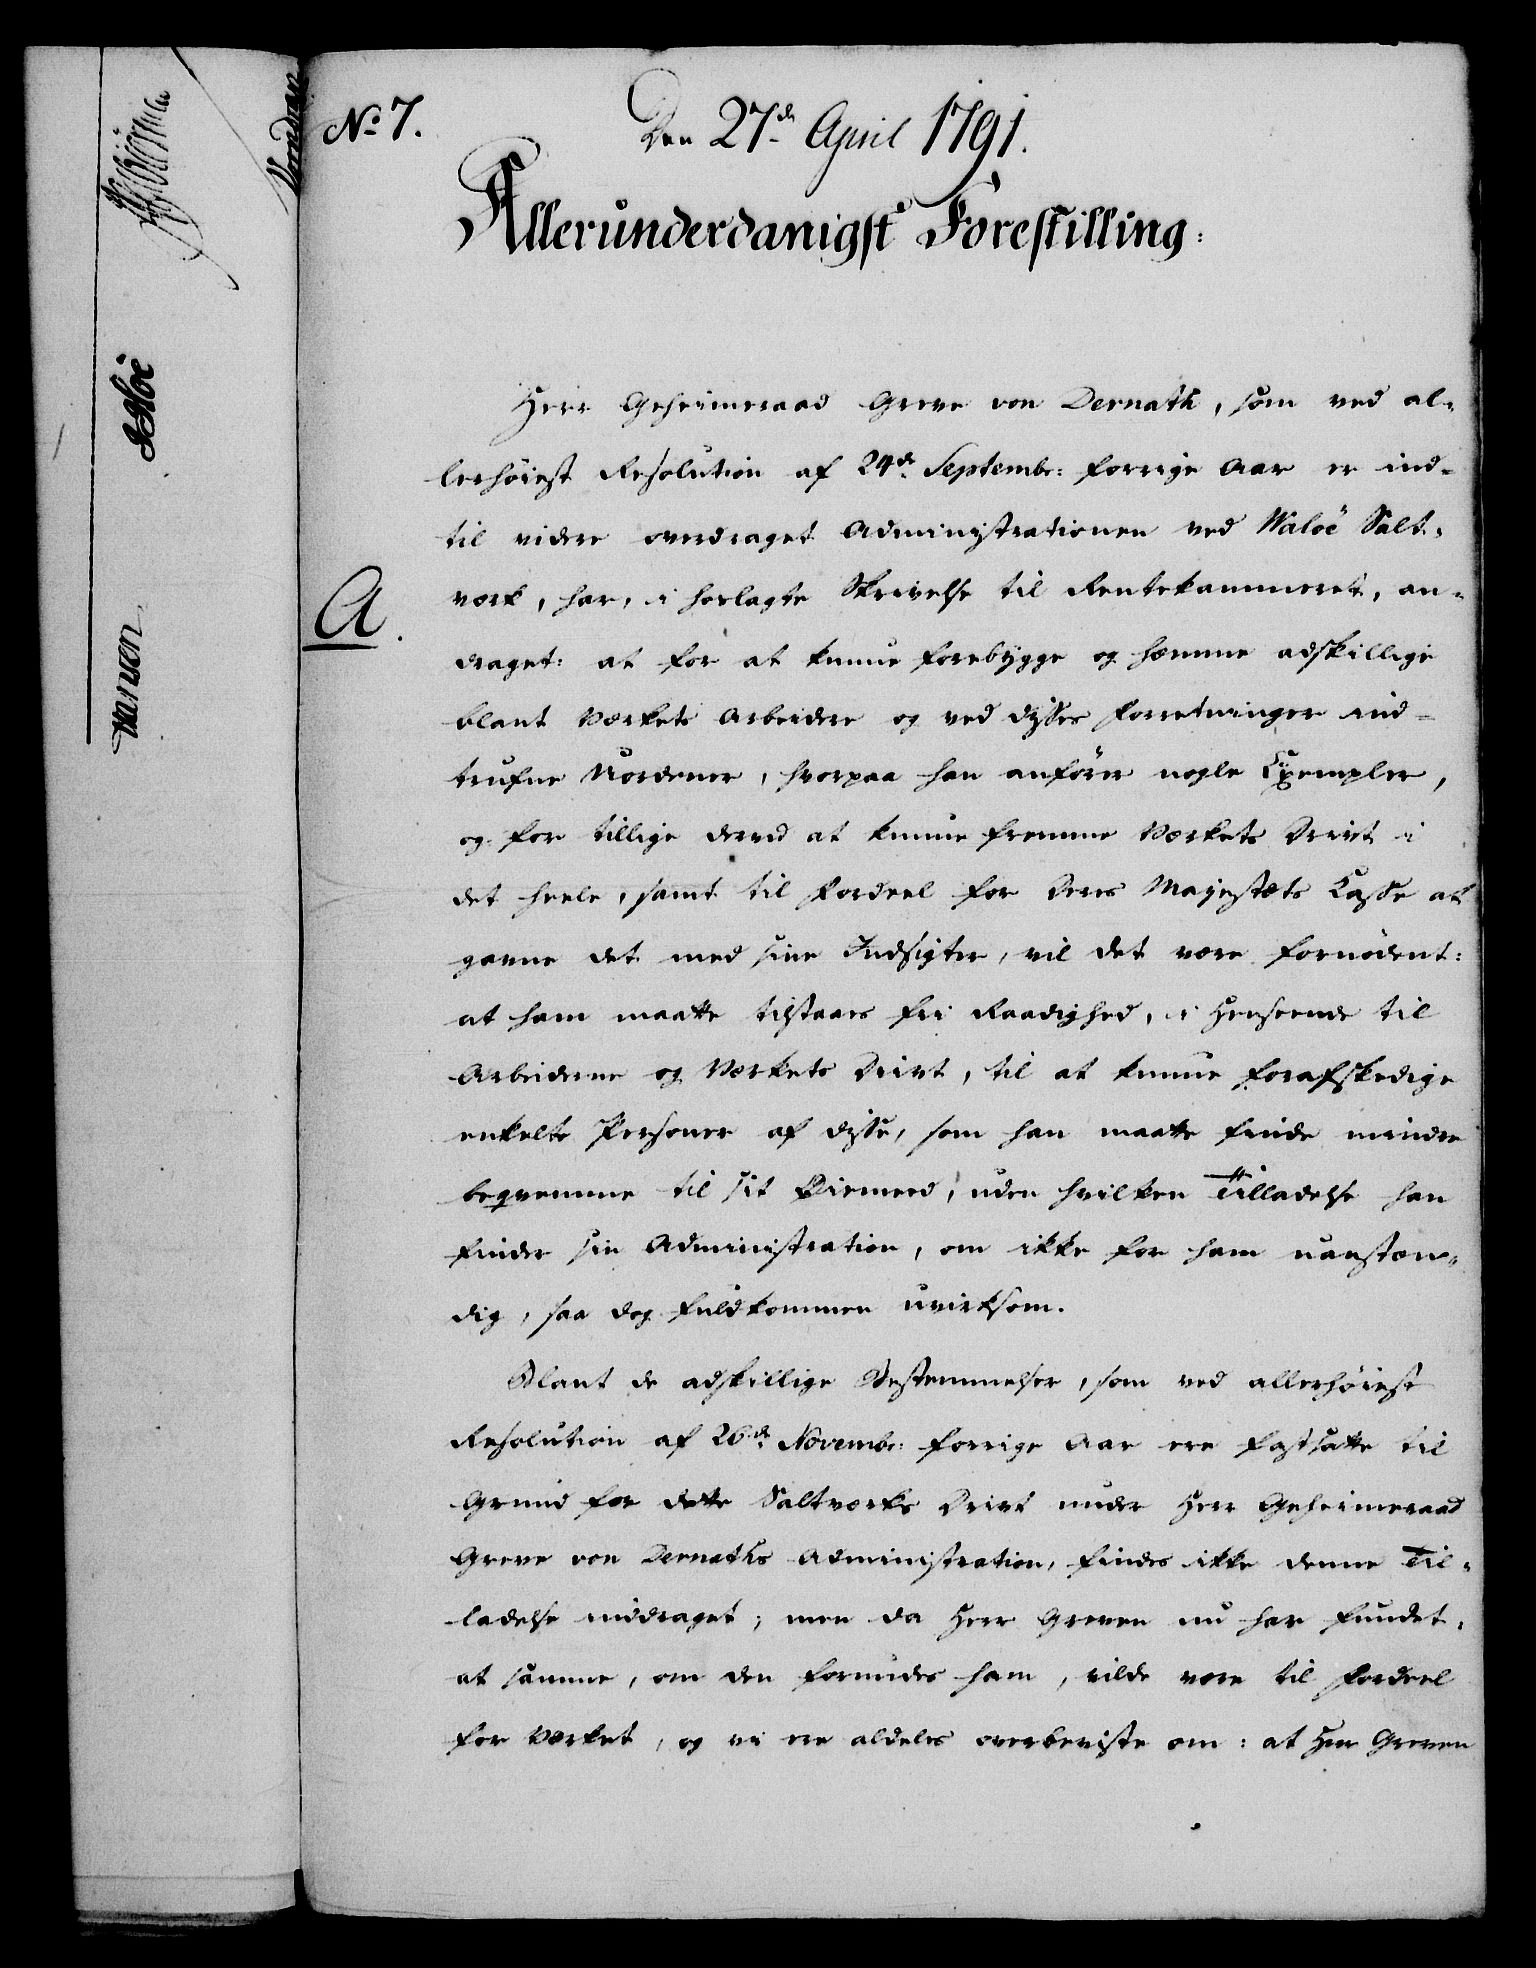 No 7.
Den 27de April 1791.
Allerunderdanigst Forestilling:
Herr Geheimeraad Greve von Dernath, som ved al-
lerhöiest Resolution af 24de Septembr: forrige Aar er ind-
til videre overdraget Administrationen ved Waloë Salt-
værk, har, i herlagte Skrivelse til Rentekammeret, an-
A.
draget: at for at kunne forebygge og hæmme adskillige
blant Værkets Arbeidere og ved dysses Forretninger ind-
trufne Uordener, hvorpaa han anförer nogle Exempler,
og for tillige derved at kunne fremme Værkets Drivt i
det heele, samt til Fordeel for Deres Majestæts Casse at
gavne det med sine Indsigter, vil det være fornödent:
at ham maatte tilstaaes fri Raadighed, i Henseende til
Arbeiderne og Værkets Drivt, til at kunne forafskedige
enkelte Personer af disse, som han maatte finde mindre
beqvemme til sit Öiemeed, uden hvilken Tilladelse han
finder sin Administration, om ikke for ham uanstæn-
dig, saa dog fuldkommen uvirksom.
Blant de adskillige Bestemmelser, som ved allerhöiest
Resolution af 26de Novembr: forrige Aar ere fastsatte til
Grund for dette Saltværks Drivt under Herr Geheimeraad
Greve von Dernaths Administration, findes ikke denne Til-
ladelse inddraget; men da Herr Greven nu har fundet,
at samme, om den forundes ham, vilde være til Fordeel
for Værket, og vi ere aldeles overbeviste om: at Herr Greven